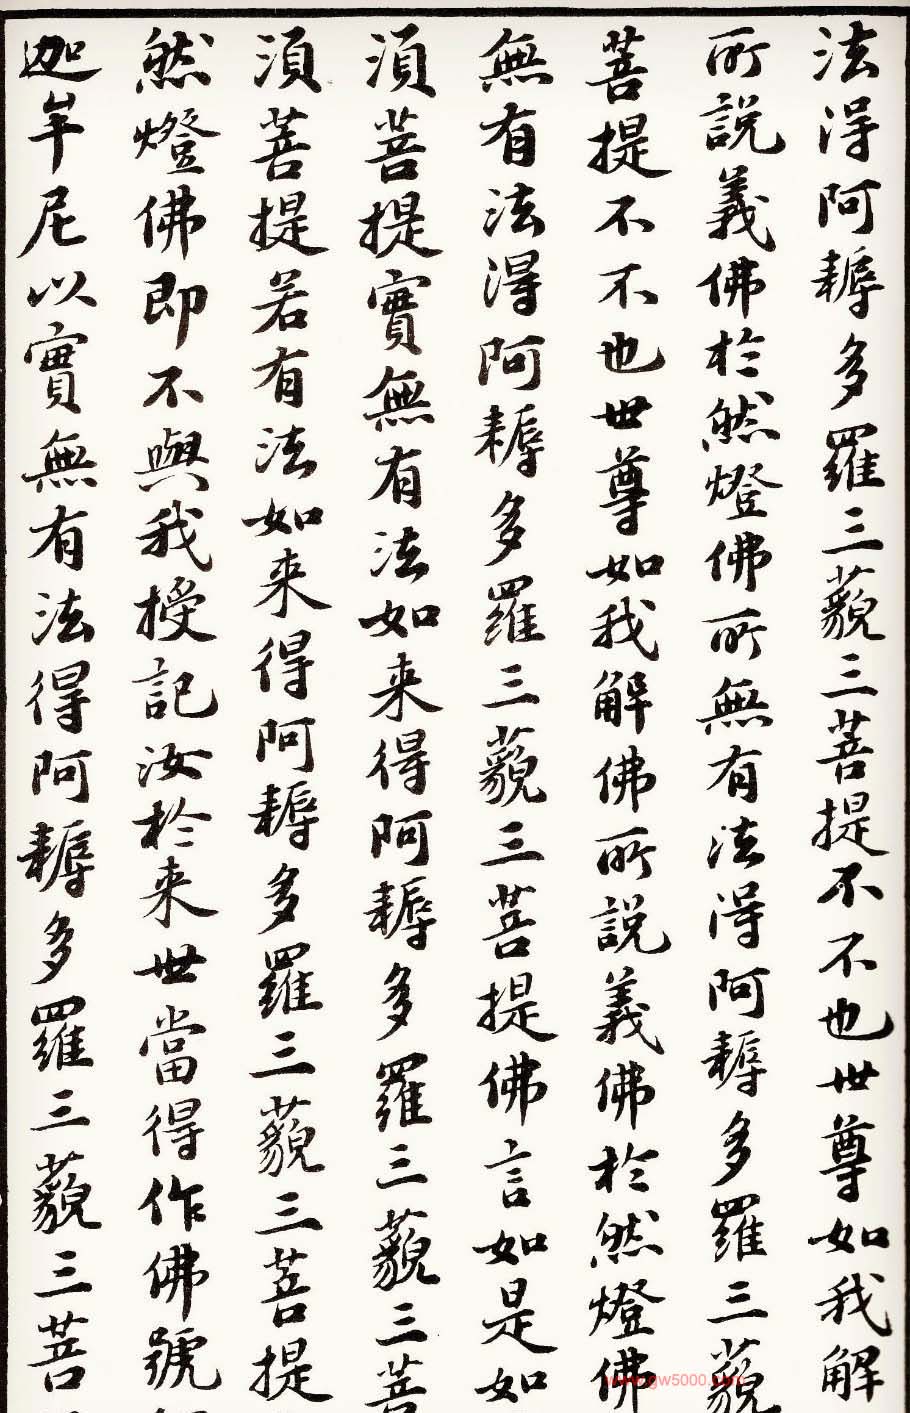 法得阿耨多羅三藐三菩提不不也世尊如我解
所說義佛於然燈佛所無有法得阿耨多羅三藐
菩提不不也世尊如我解佛所說義佛於然燈佛
無有法得阿耨多羅三藐三菩提佛言如是如
須菩提實無有法如来得阿耨多羅三藐三菩
須菩提若有法如来得阿耨多羅三藐三菩提
然燈佛即不與我授記汝於来世當得作佛號
迦牟尼以實無有法得阿耨多羅三藐三菩
www.gw5000.com